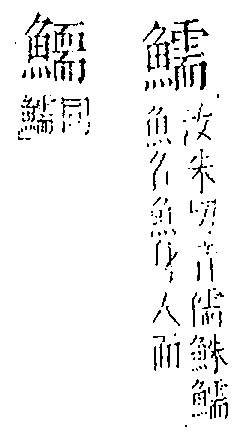 鱬
汝朱切音儒鮢鱬
魚名魚身人面
同鱬